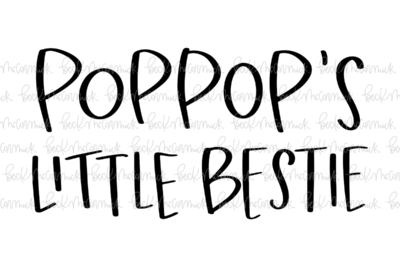 POPPOP'S
LITTLE BESTIE